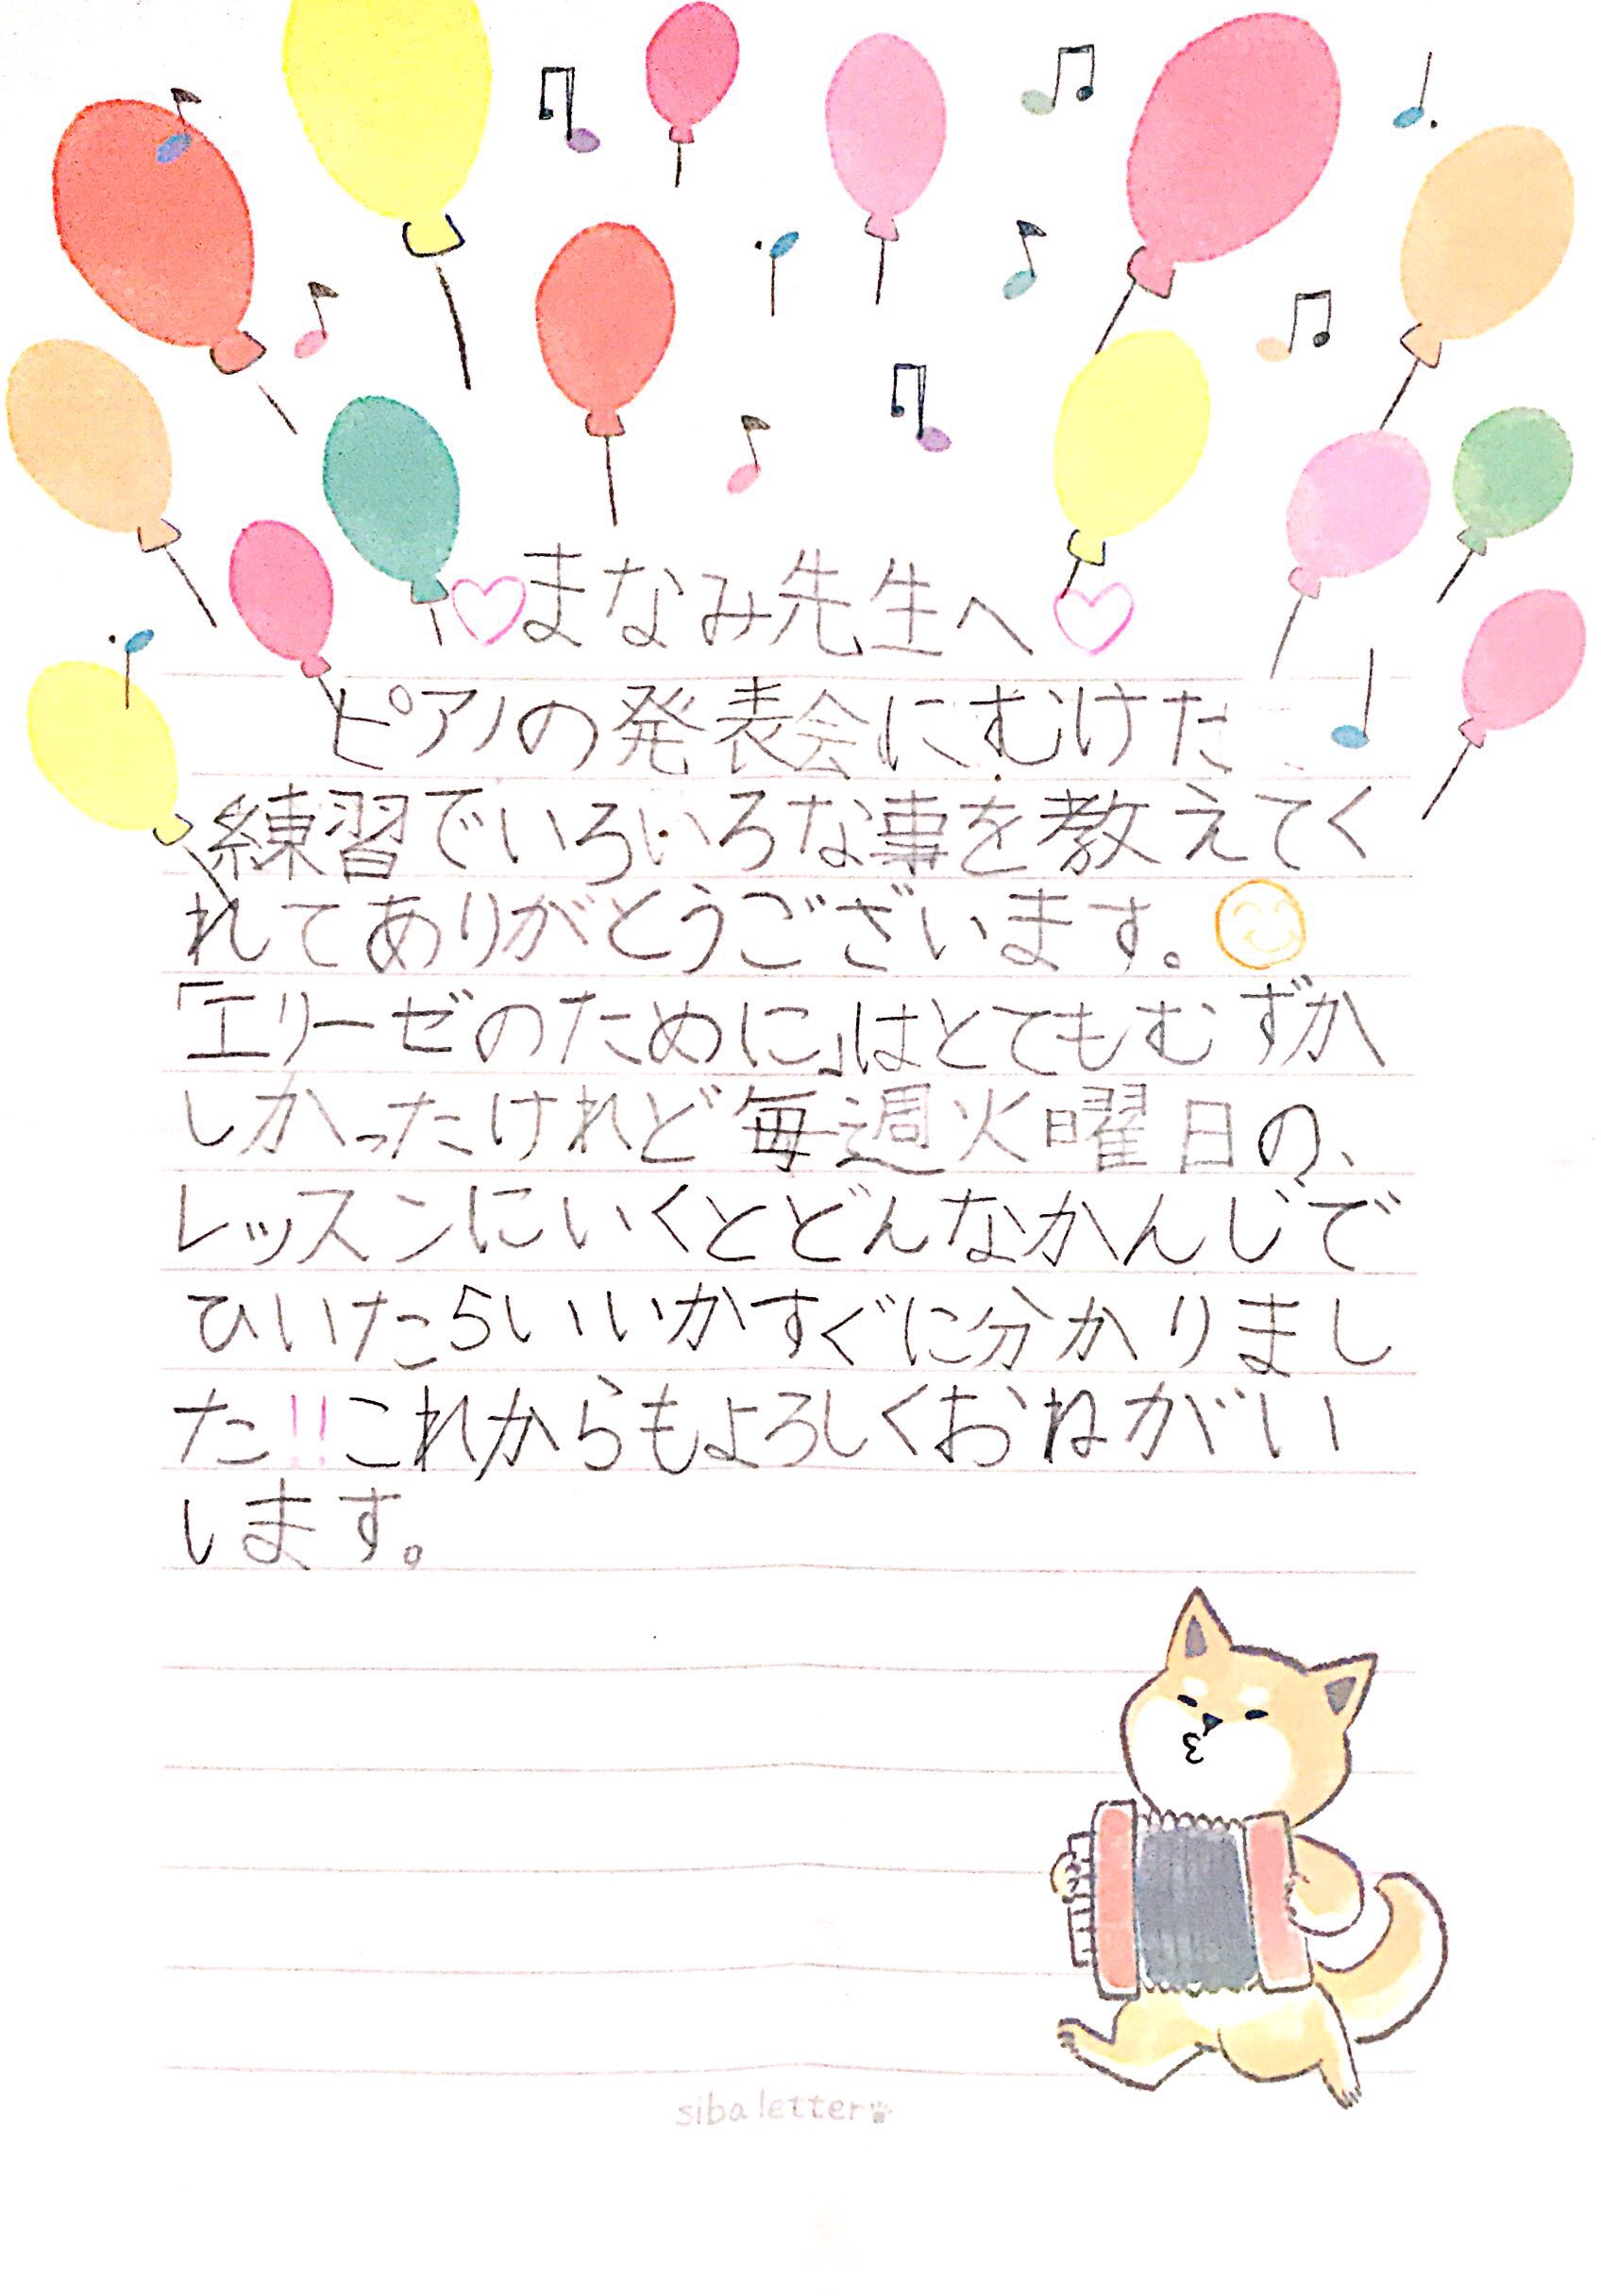 ♡まなみ先生へ♡
ピアノの発表会にむけた
練習でいろいろな事を教えてく
れてありがとうございます。
「エリーゼのために」はとてもむずか
しかったけれど毎週火曜日の、
レッスンにいくとどんなかんじで
ひいたらいいかすぐに分かりまし
た!!これからもよろしくおねがい
します。
sibaletter